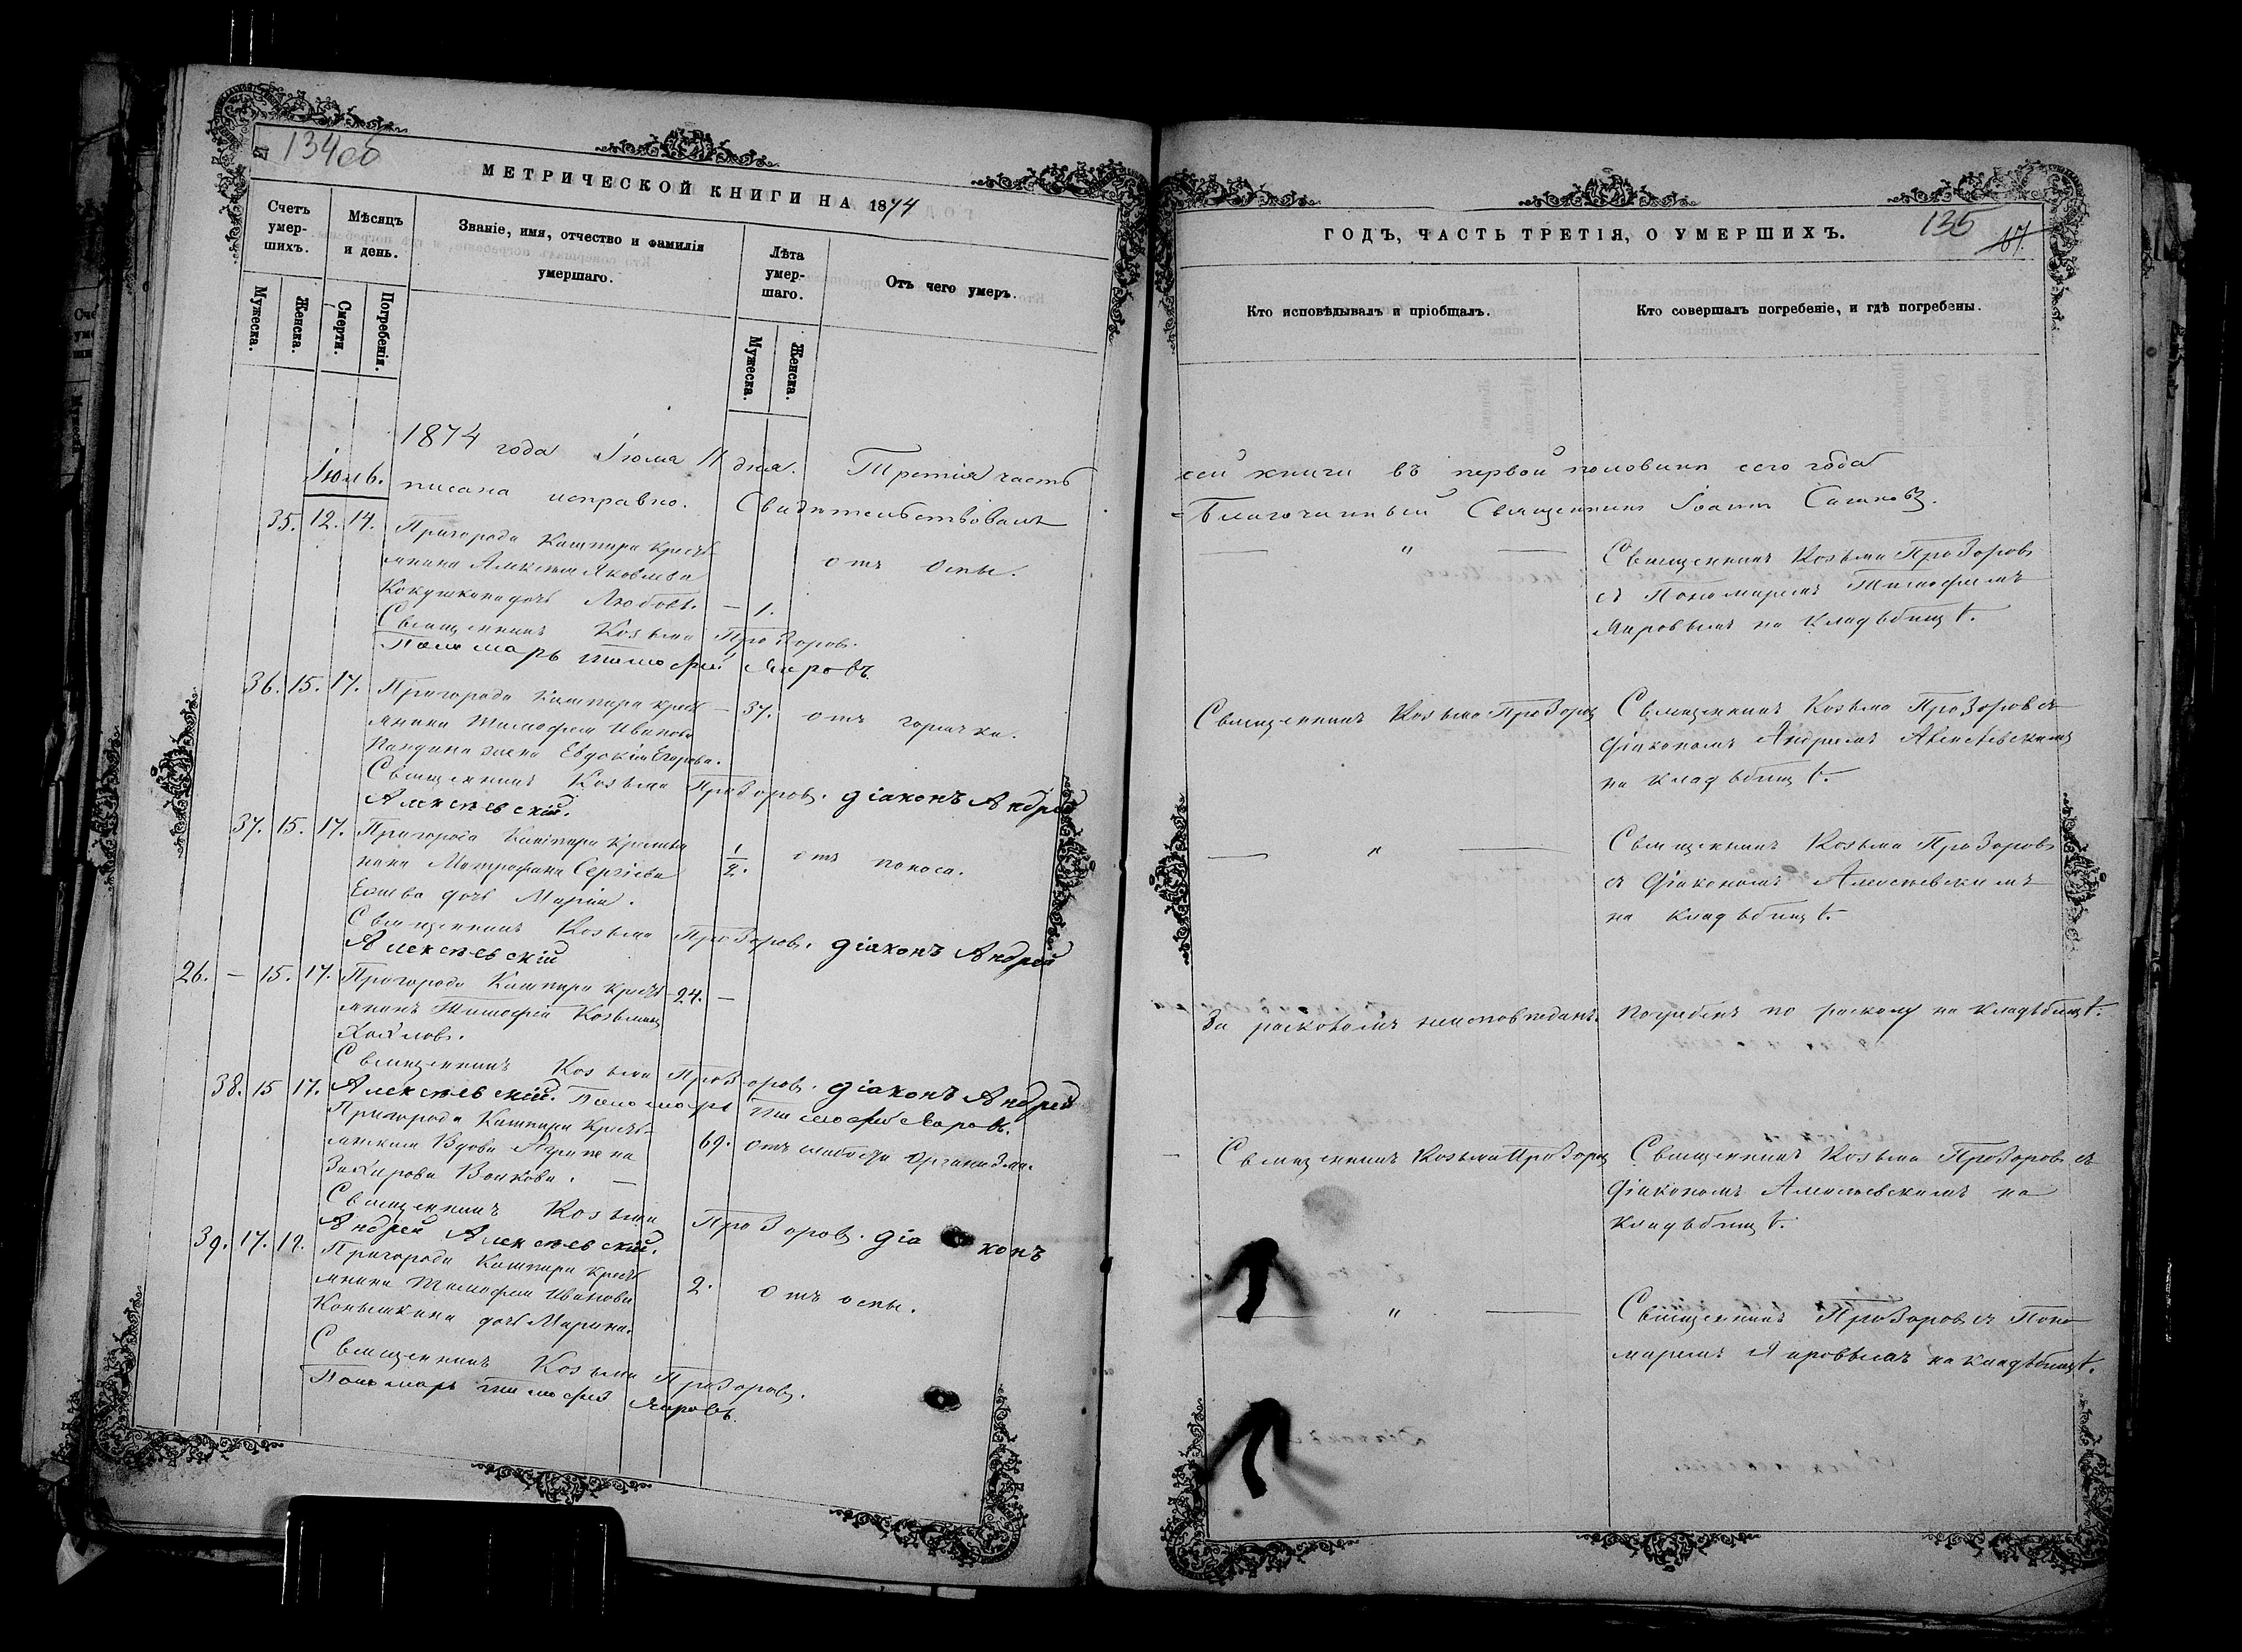 134об
МЕТРИЧЕСКОЙ КНИГИ НА 1874
Счетъ умершихъ.
Мужеска.
Женска.
Мѣсяцъ и день.
Смерти.
Погребенія.
Званіе, имя, отчество и фамилія умершаго.
Лѣта умершаго.
Мужеска.
Женска.
Отъ чего умеръ.
1874 года Іюля 11 дня. Третія часть
писана исправно. Свидѣтельствовалъ
Іюль.
35. 12. 14. Пригорода Кашпира крестьянина Алексѣя Яковлева
Кокушкина дочь Любовь. — 1. отъ оспы.
Священникъ Козьма Прозоровъ.
Пономарь Тимофей Мировъ.
36. 15. 17. Пригорода Кашпира крестьянина Тимофея Иванова
жена Евдокія Егорова. — 37. отъ горячки.
Священникъ Козьма Прозоровъ. Діаконъ Андрей
Алексѣевскій.
37. 15. 17. Пригорода Кашпира крестьянина Митрофана Сергѣева
дочь Марія. 1/2. отъ поноса.
Священникъ Козьма Прозоровъ. Діаконъ Андрей
Алексѣевскій
26. — 15. 17. Пригорода Кашпира крестьянинъ Тимофей Козьминъ 24. —
Священникъ Козьма Прозоровъ. Діаконъ Андрей
Алексѣевскій. Пономарь Тимофей Мировъ.
38. 15 17. Пригорода Кашпира крестьянская вдова
Захарова Волкова. — 69. отъ слабости организма.
Священникъ Козьма Прозоровъ. Діаконъ
Андрей Алексѣевскій.
39. 17. 19. Пригорода Кашпира крестьянина Тимофея Иванова
дочь Марина. 2. отъ оспы.
Священникъ Козьма Прозоровъ.
Пономарь Тимофей Мировъ.
135
67.
ГОДЪ, ЧАСТЬ ТРЕТІЯ, О УМЕРШИХЪ.
Кто исповѣдывалъ и пріобщалъ.
Кто совершалъ погребеніе, и гдѣ погребены.
сей книги въ первой половинѣ сего года
Благочинный Священникъ Іоаннъ
— " — Священникъ Козьма Прозоровъ
съ Пономаремъ Тимофеемъ
Мировымъ на кладбищѣ.
Священникъ Козьма Прозоровъ Священникъ Козьма Прозоровъ съ
Діакономъ Андреемъ Алексѣевскимъ
на кладбищѣ.
— " — Священникъ Козьма Прозоровъ
съ Діакономъ Алексѣевскимъ
на кладбищѣ.
За расколомъ неисповѣданъ. Погребенъ по расколу на кладбищѣ.
Священникъ Козьма Прозоровъ Священникъ Козьма Прозоровъ съ
Діакономъ Алексѣевскимъ на
кладбищѣ.
— " — Священникъ Прозоровъ съ Пономаремъ Мировымъ на кладбищѣ.